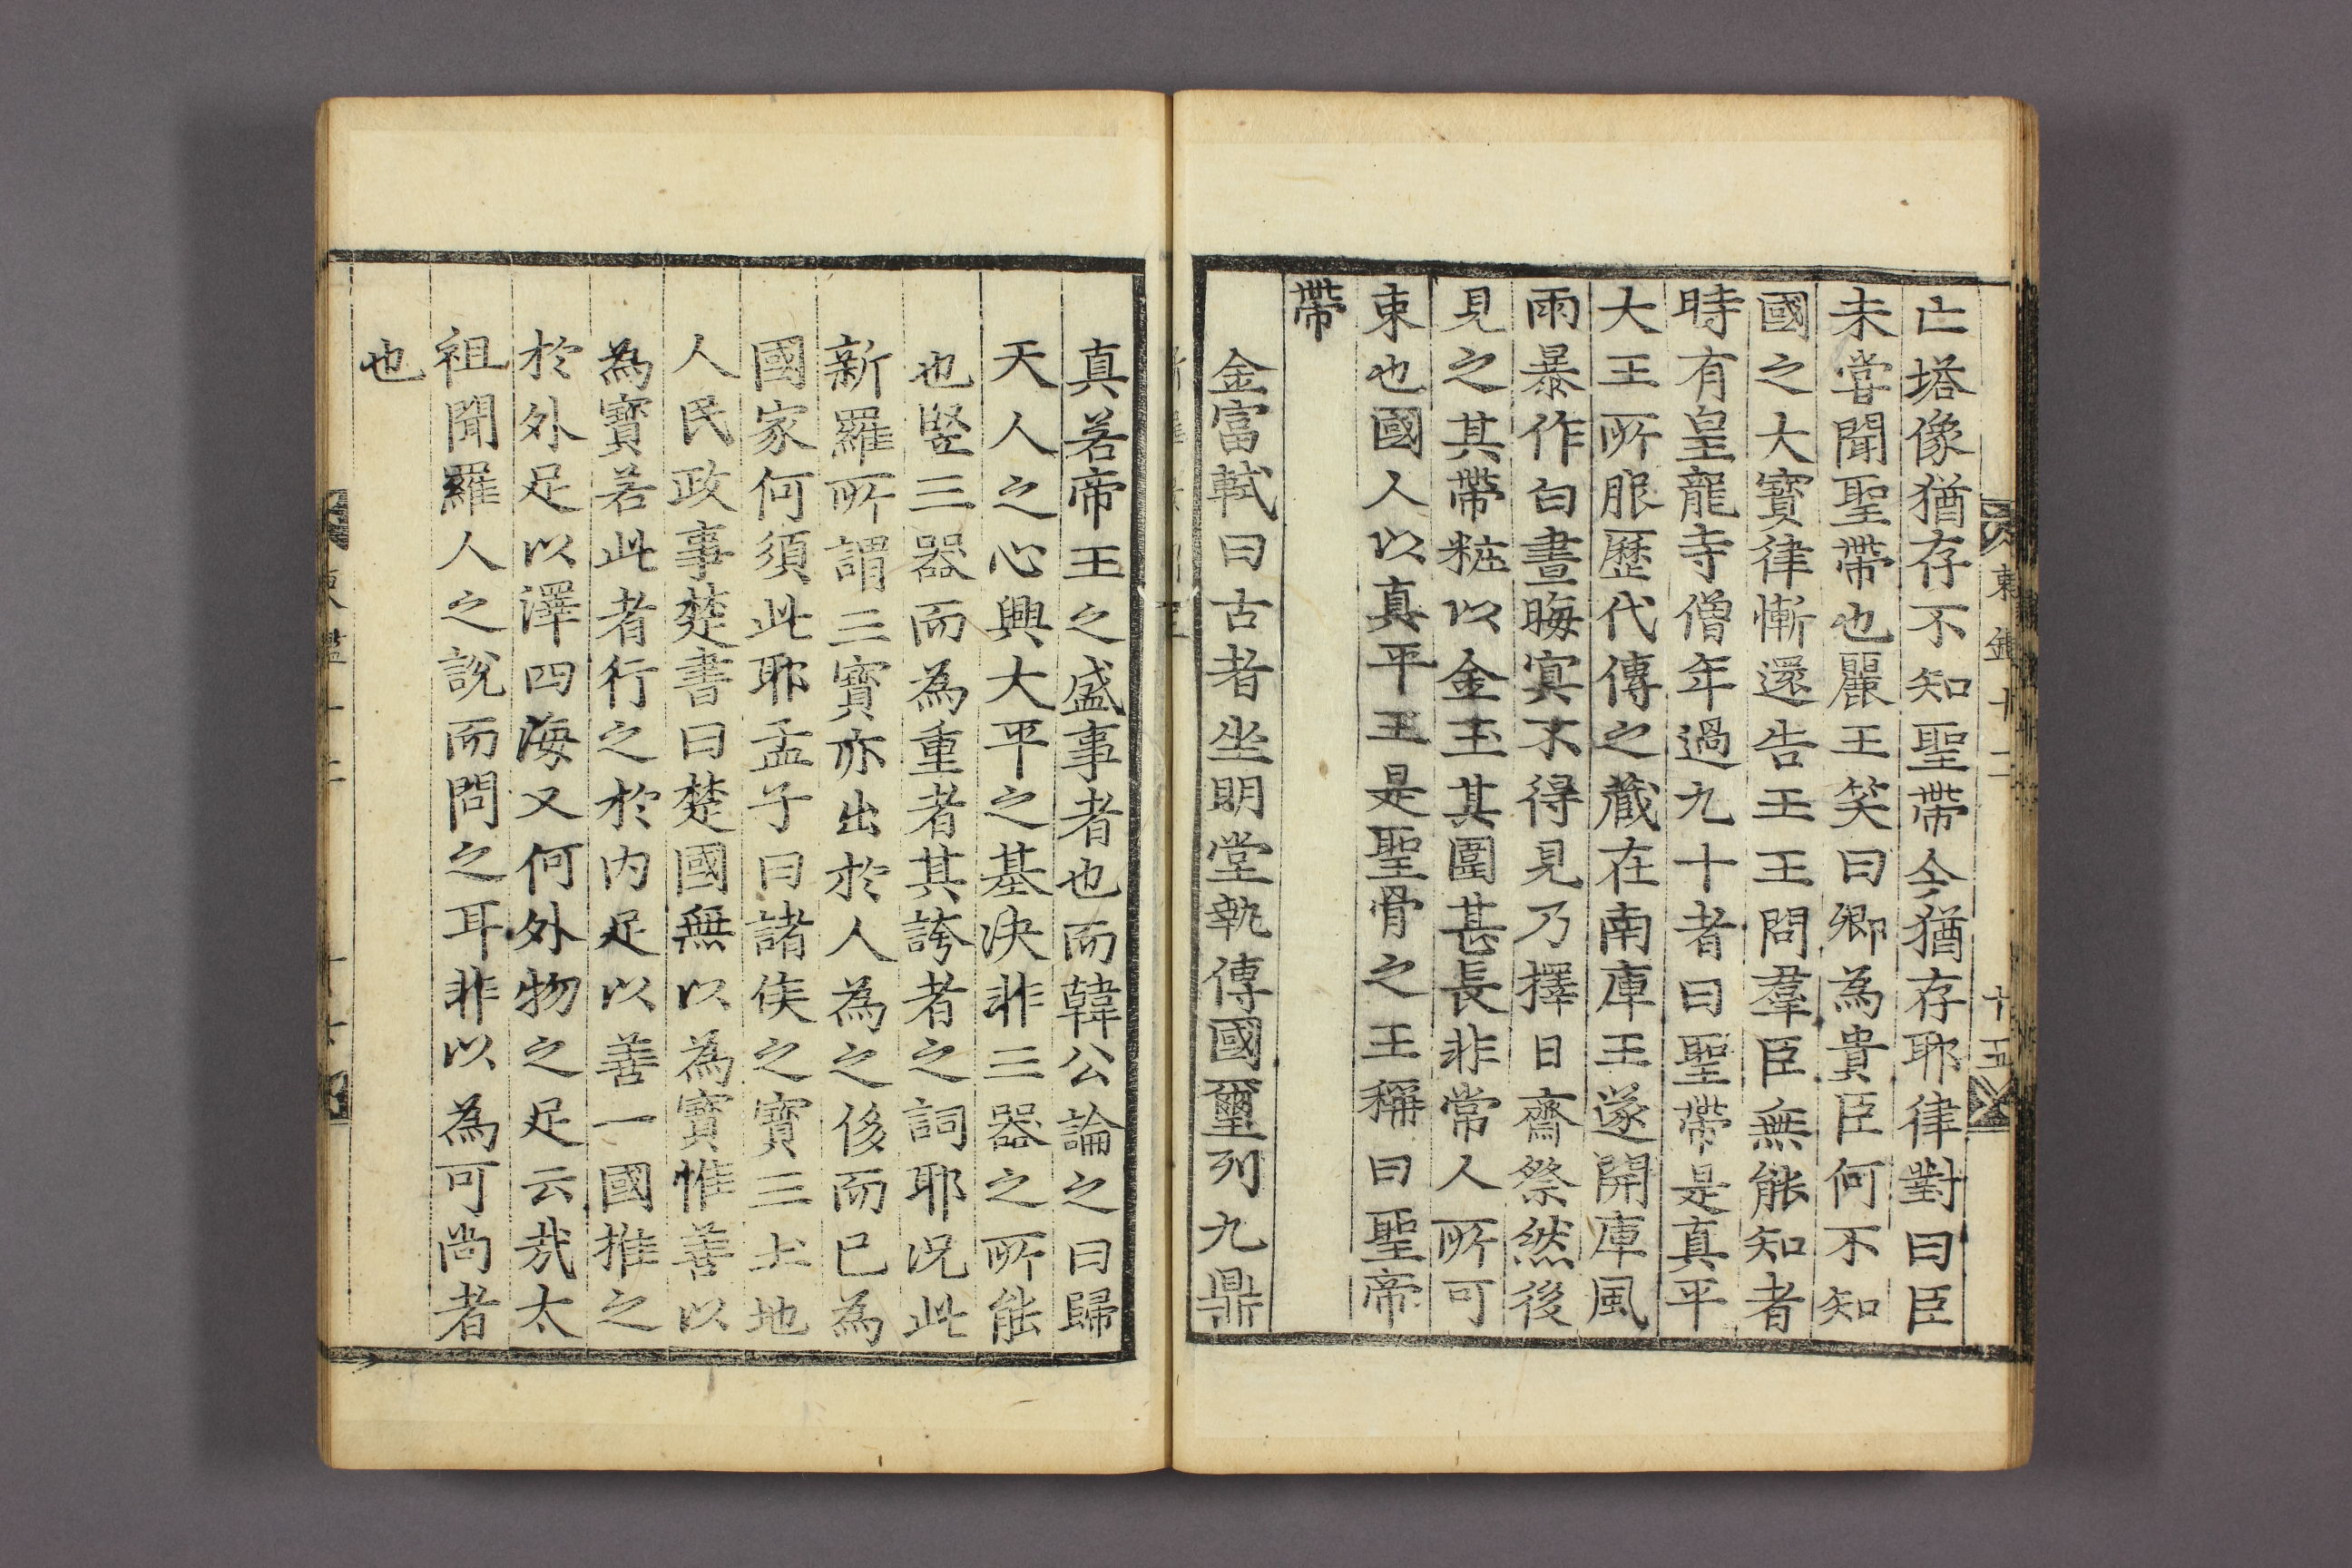 亡塔像猶存不知聖帶今猶存耶律對曰臣
未嘗聞聖帶也麗王笑曰卿為貴臣何不知
國之大寶律慚還告王王問羣臣無能知者
時有皇龍寺僧年過九十者曰聖帶是真平
大王所服歷代傳之藏在南庫王遂開庫風
雨暴作白晝晦冥不得見乃擇日齋祭然後
見之其帶粧以金玉其圍甚長非常人所可
束也國人以真平王是聖骨之王稱曰聖帝
帶
金富軾曰古者坐明堂執傳國璽列九鼎
真若帝王之盛事者也而韓公論之曰歸
天人之心興大平之基決非三器之所能
也竪三器而為重者其誇者之詞耶况此
新羅所謂三寶亦出於人為之侈而已為
國家何須此耶孟子曰諸侯之寶三土地
人民政事楚書曰楚國無以為寶惟善以
為寶若此者行之於内足以善一國推之
於外足以澤四海又何外物之足云哉太
祖聞羅人之說而問之耳非以為可尚者
也